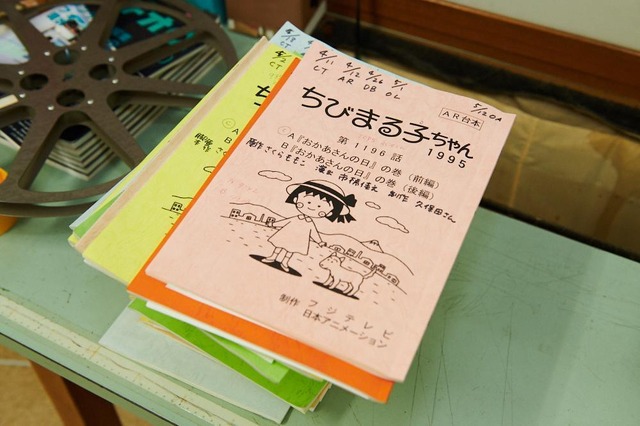 4/11 4/12 4/26 5/1
CT AR DB OL
5/12OA
AR台本
ちびまる子ちゃん
1995
第1196話
Ⓐ『おかあさんの日』の巻（前編）
B『おかあさんの日』の巻（後編）
脚作 さくらももこ 演出 市橋佳之 制作 久保田さん
制作 フジテレビ
日本アニメーション
CT
CT
ち
ⒸA
B